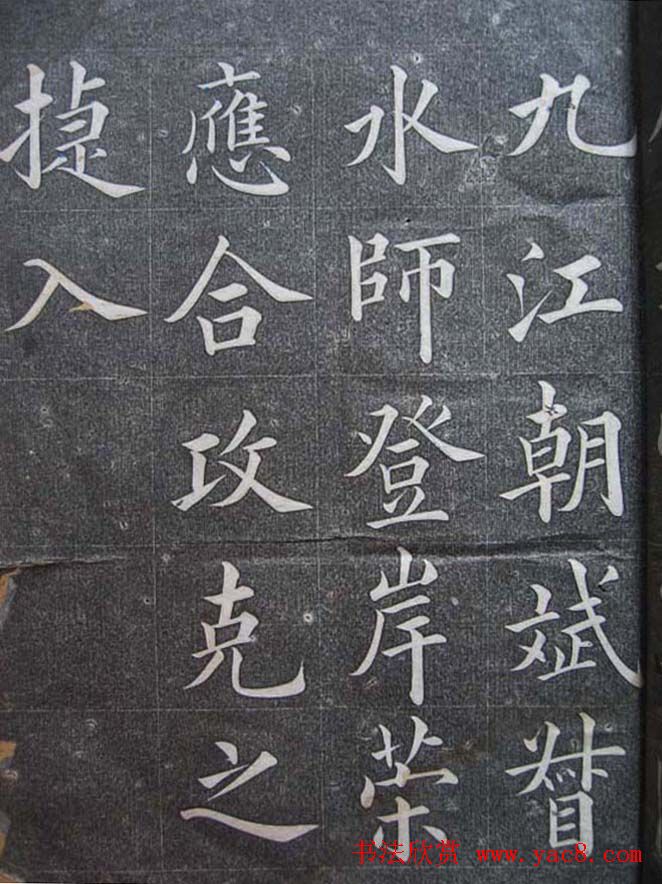 九江朝斌督
水師登岸榮
應合攻克之
捷入
书法欣赏 www.yac8.com